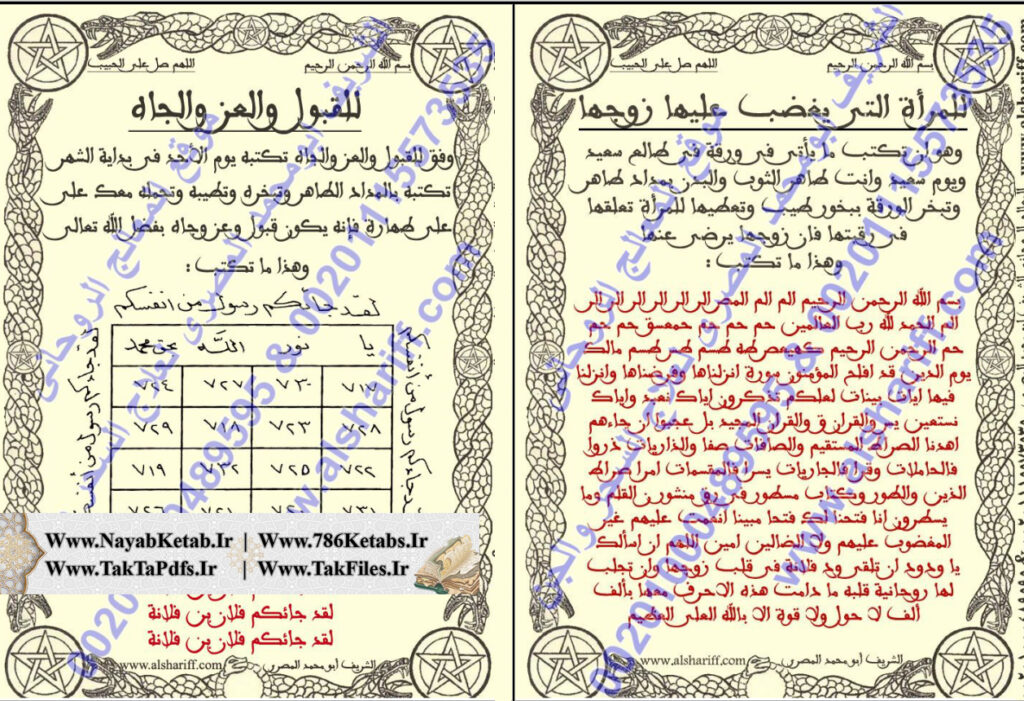 بسم الله الرحمن الرحيم
اللهم صل على الحبيب
للمرأة التى يغضب عليها زوجها
وهو ان تكتب ما يأتى فى ورقة فى طالع سعيد
ويوم سعيد وانت طاهر الثوب والبدن بمداد طاهر
وتبخر الورقة ببخور طيب وتعطيها للمرأة تعلقها
فى رقبتها فان زوجها يرضى عنها
وهذا ما تكتب :
بسم الله الرحمن الرحيم الم الم المص الر الر الر الر الر الر
الم الحمد لله رب العالمين حم حم حم حمعسق حم حم
حم الرحمن الرحيم كهيعص طه طسم طس طسم مالك
يوم الدين قد افلح المؤمنون سورة انزلناها وفرضناها وانزلنا
فيها ايات بينات لعلكم تذكرون اياك نعبد واياك
نستعين يس والقران ق والقران المجيد بل عجبوا ان جاءهم
اهدنا الصراط المستقيم والصافات صفا والذاريات ذروا
فالحاملات وقرا فالجاريات يسرا فالمقسمات امرا صراط
الذين والطور وكتاب مسطور فى رق منشور ن القلم وما
يسطرون انا فتحنا لك فتحا مبينا انعمت عليهم غير
المغضوب عليهم ولا الضالين امين اللهم ان اسألك
يا ودود ان تلقى ود فلانة فى قلب زوجها وان تجلب
لها روحانية قلبه ما دامت هذه الاحرف معها بألف
ألف لا حول ولا قوة الا بالله العلى العظيم
الشريف أبو محمد المصرى
www.alshariff.com
بسم الله الرحمن الرحيم
اللهم صل على الحبيب
للقبول والعز والجاه
وفق للقبول والعز والجاه تكتبه يوم الأحد فى بداية الشهر
تكتبه بالمداد الطاهر وتبخره وتطيبه وتحمله معك على
على طهارة فإنه يكون قبول وعز وجاه بفضل الله تعالى
وهذا ما تكتب :
لقد جائكم رسول من أنفسكم
لقد جاءكم رسول من أنفسكم
يا نور الله بحق محمد
٧١٧ ٧٣٠ ٧٢٧ ٧٢٤
٧٢٨ ٧٢٣ ٧١٨ ٧٢٩
٧٢٢ ٧٢٥ ٧٣٢ ٧١٩
www.NayabKetab.Ir | www.786Ketabs.Ir
www.TakTaPdfs.Ir | www.TakFiles.Ir
لقد جائكم فلان بن فلانة
لقد جائكم فلان بن فلانة
الشريف أبو محمد المصرى
www.alshariff.com